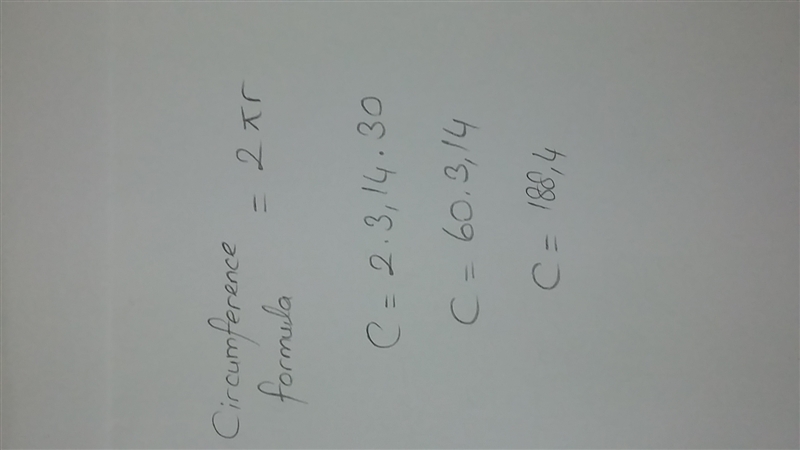 Circumference
formula = 2πr
C = 2.3,14.30
C = 60.3,14
C = 188,4